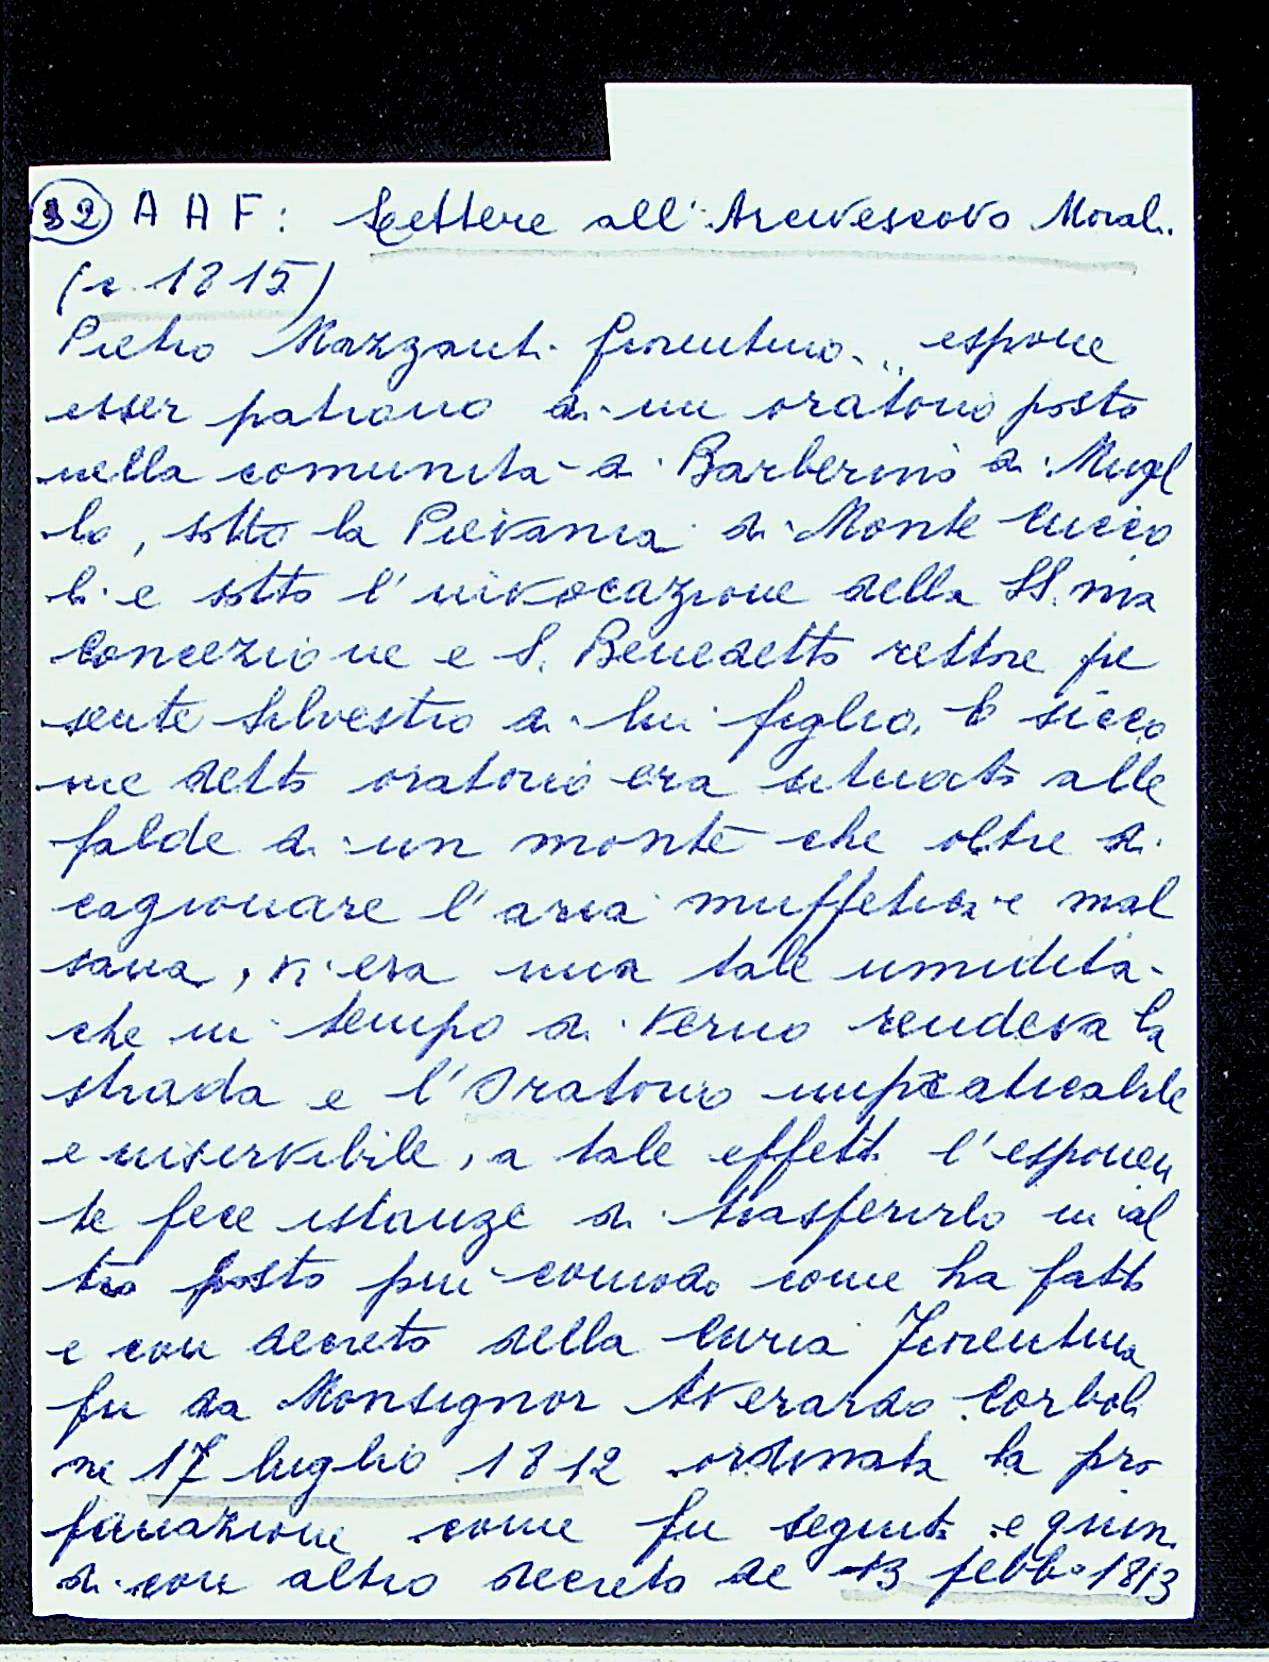 32 A A F: Lettere all'Arcivescovo Morali.
(c. 1815)
Pietro Mazzanti fiorentino... espone
esser patrono di un oratorio posto
nella comunità di Barberino di Mugel
lo, sotto la Pievania di Monte Cucco
li e sotto l'invocazione della SS.ma
Concezione e S. Benedetto rettore pre
sente Silvestro di lui figlio. E sicco
me detto oratorio era situato alle
falde di un monte che oltre di
cagionare l'aria muffetica e mal
sana, vi era una tale umidità
che in tempo di verno rendeva la
strada e l'Oratorio impraticabile
e inservibile, a tale effetto l'esponen
te fece istanze di trasferirlo in al
tro posto più comodo come ha fatto
e con decreto della Curia Fiorentina
fu da Monsignor Averardo Corboli
ne 17 luglio 1812 ordinata la pro
fanazione come fu seguito e quin
di con altro decreto de 13 febb° 1813